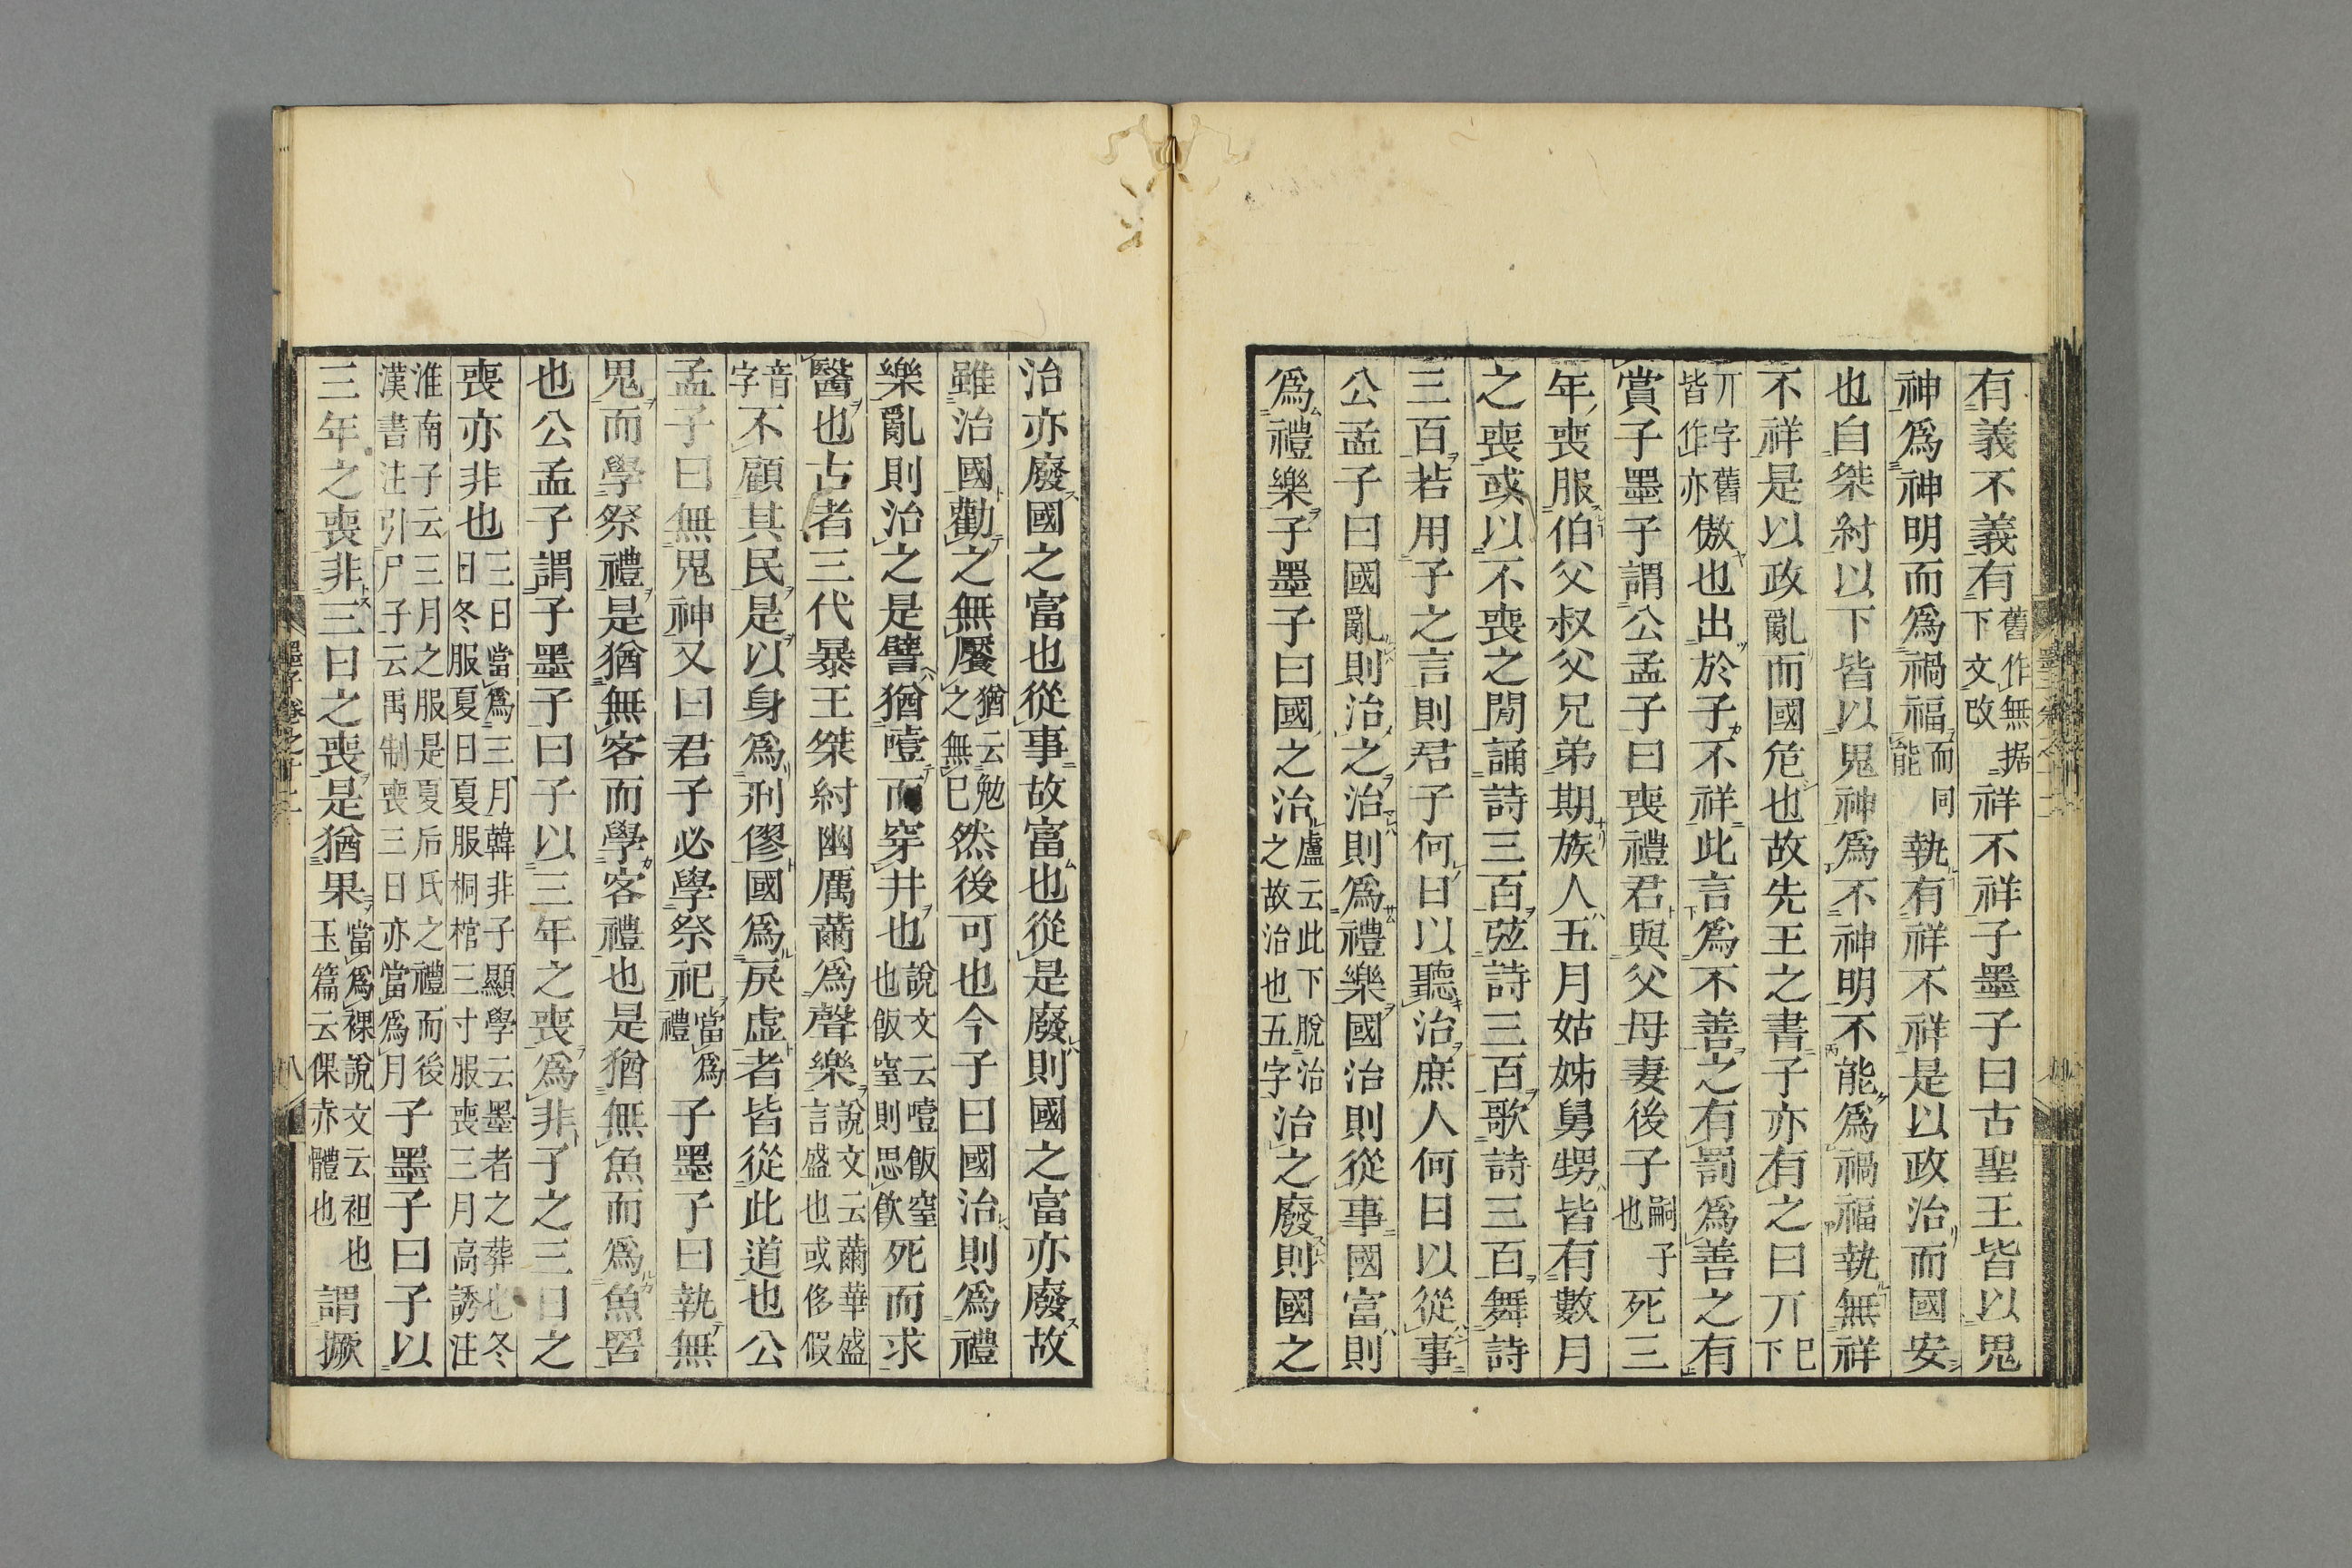 有義不義有舊作無据下文改祥不祥子墨子曰古聖王皆以鬼
神爲神明而爲禍福而能同執有祥不祥是以政治而國安
也自桀紂以下皆以鬼神爲不神明不能爲禍福執無祥
不祥是以政亂而國危也故先王之書子亦有之曰丌已下
丌字舊皆作亦傲也出於子不祥此言爲不善之有罰爲善之有
賞子墨子謂公孟子曰喪禮君與父母妻後子嗣子也死三
年喪服伯父叔父兄弟期族人五月姑姊舅甥皆有數月
之喪或以不喪之閒誦詩三百弦詩三百歌詩三百舞詩
三百若用子之言則君子何日以聽治庶人何日以從事
公孟子曰國亂則治之治則爲禮樂國治則從事國富則
爲禮樂子墨子曰國之治盧云此下脫治之故治也五字治之廢則國之
治亦廢國之富也從事故富也從是廢則國之富亦廢故
雖治國勸之無饜猶云勉之無已然後可也今子曰國治則爲禮
樂亂則治之是譬猶噎而穿井也說文云噎飯窒也飯窒則思飲死而求
醫也古者三代暴王桀紂幽厲薾爲聲樂說文云薾華盛言盛也或侈假
音字不顧其民是以身爲刑僇國爲戾虛者皆從此道也公
孟子曰無鬼神又曰君子必學祭祀當爲禮子墨子曰執無
鬼而學祭禮是猶無客而學客禮也是猶無魚而爲魚罟
也公孟子謂子墨子曰子以三年之喪爲非子之三日之
喪亦非也三日當爲三月韓非子顯學云墨者之葬也冬日冬服夏日夏服桐棺三寸服喪三月高誘注
淮南子云三月之服是夏后氏之禮而後漢書注引尸子云禹制喪三日亦當爲月子墨子曰子以
三年之喪非三日之喪是猶果當爲裸說文云袒也玉篇云倮赤體也謂撅
墨子卷之十二
八